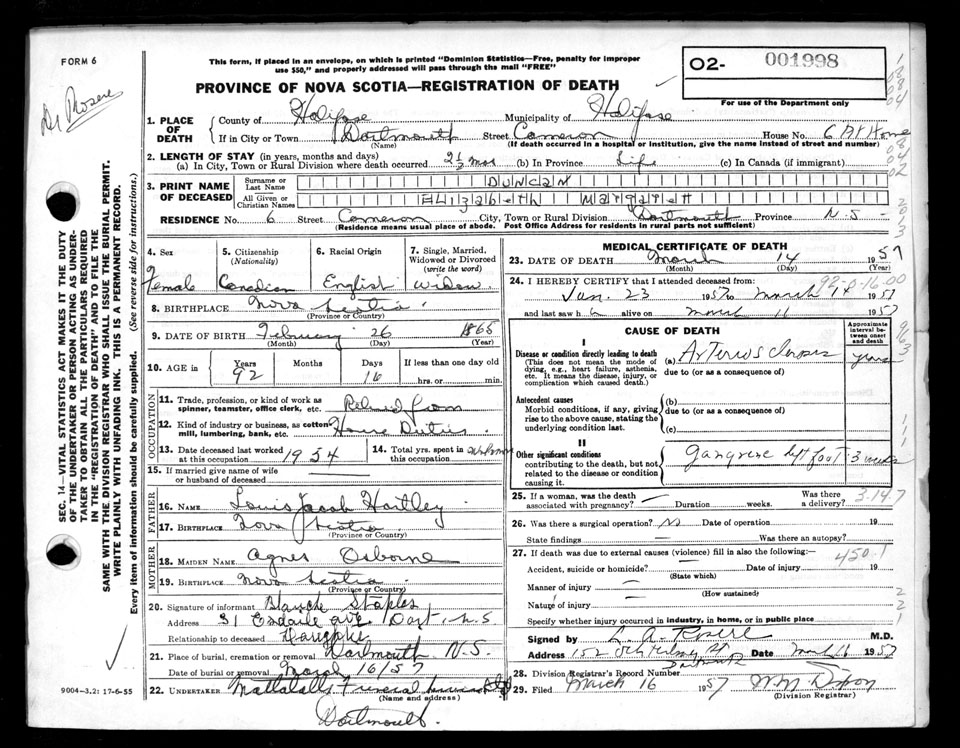 FORM 6
This form, if placed in an envelope, on which is printed "Dominion Statistics—Free, penalty for improper
use $50," and properly addressed will pass through the mail "FREE"
PROVINCE OF NOVA SCOTIA—REGISTRATION OF DEATH
O2- 001998
For use of the Department only
1. PLACE OF DEATH
County of Halifax Municipality of Halifax
If in City or Town Dartmouth Street Cameron House No. 6 At Home
(Name) (If death occurred in a hospital or institution, give the name instead of street and number)
2. LENGTH OF STAY (in years, months and days)
(a) In City, Town or Rural District where death occurred 2½ mos (b) In Province Life (c) In Canada (if immigrant)
3. PRINT NAME OF DECEASED
Surname or Last Name DUNCAN
All Given or Christian Names Elizabeth Margaret
RESIDENCE No. 6 Street Cameron City, Town or Rural Division Dartmouth Province N.S.
(Residence means usual place of abode. Post Office Address for residents in rural parts not sufficient)
4. Sex
Female
5. Citizenship (Nationality)
Canadian
6. Racial Origin
English
7. Single, Married, Widowed or Divorced (write the word)
Widow
8. BIRTHPLACE Nova Scotia
(Province or Country)
9. DATE OF BIRTH February 26 1865
(Month) (Day) (Year)
10. AGE in Years 92 Months Days 16 If less than one day old hrs. or min.
OCCUPATION
11. Trade, profession, or kind of work as spinner, teamster, office clerk, etc. Retired from
12. Kind of industry or business, as cotton mill, lumbering, bank, etc. House Duties
13. Date deceased last worked at this occupation 1954
14. Total yrs. spent in this occupation
15. If married give name of wife or husband of deceased
FATHER
16. NAME Louis Jacob Hartley
17. BIRTHPLACE Nova Scotia
(Province or Country)
MOTHER
18. MAIDEN NAME Agnes Osborne
19. BIRTHPLACE Nova Scotia
(Province or Country)
20. Signature of informant Blanch Staples
Address 31 Esdaile Ave Dart. N.S.
Relationship to deceased Daughter
21. Place of burial, cremation or removal Dartmouth N.S.
Date of burial or removal March 16/57
22. UNDERTAKER Mattatall's Funeral
(Name and address)
Dartmouth.
MEDICAL CERTIFICATE OF DEATH
23. DATE OF DEATH March 14 1957
(Month) (Day) (Year)
24. I HEREBY CERTIFY that I attended deceased from:
Jan. 23 1957 to March 14 1957
and last saw h alive on March 11 1957
CAUSE OF DEATH
Approximate interval between onset and death
I
Disease or condition directly leading to death
(This does not mean the mode of dying, e.g., heart failure, asthenia, etc. It means the disease, injury, or complication which caused death.)
(a) Arteriosclerosis years
due to (or as a consequence of)
Antecedent causes
Morbid conditions, if any, giving rise to the above cause, stating the underlying condition last.
(b)
due to (or as a consequence of)
(c)
II
Other significant conditions
contributing to the death, but not related to the disease or condition causing it.
Gangrene left foot 3 weeks
25. If a woman, was the death associated with pregnancy? Duration weeks. Was there a delivery?
3.14.7
26. Was there a surgical operation? No Date of operation 19
State findings Was there an autopsy?
27. If death was due to external causes (violence) fill in also the following:—
450.1
Accident, suicide or homicide? Date of injury 19
(State which)
Manner of injury
(How sustained)
Nature of injury
Specify whether injury occurred in industry, in home, or in public place
Signed by L. A. Rosere M.D.
Address 102 St Date March 16 1957
Dartmouth
28. Division Registrar's Record Number
29. Filed March 16 1957 W.M. Dixon
(Division Registrar)
Dr Rosere
SEC. 14—VITAL STATISTICS ACT MAKES IT THE DUTY
OF THE UNDERTAKER OR PERSON ACTING AS UNDERTAKER TO OBTAIN ALL THE PARTICULARS REQUIRED
IN THE "REGISTRATION OF DEATH" AND TO FILE THE
SAME WITH THE DIVISION REGISTRAR WHO SHALL ISSUE THE BURIAL PERMIT.
WRITE PLAINLY WITH UNFADING INK. THIS IS A PERMANENT RECORD.
Every item of information should be carefully supplied. (See reverse side for instructions.)
9004-3.2: 17-6-55